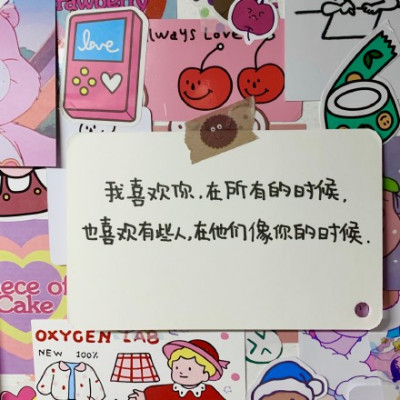 love
Always Love
我喜欢你.在所有的时候,
也喜欢有些人,在他们像你的时候.
iece of
Cake
OXYGEN LAB
NEW 100%